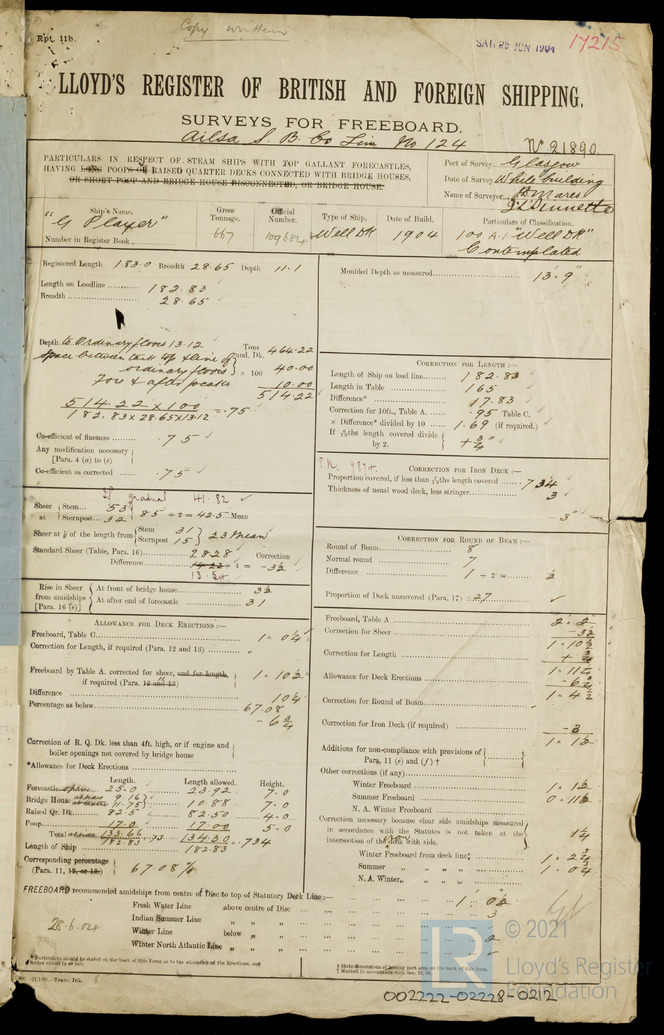 Rpt. 11b.
Copy written
SAT. 25 JUN 1904
17215
LLOYD'S REGISTER OF BRITISH AND FOREIGN SHIPPING.
SURVEYS FOR FREEBOARD.
Ailsa S. B. Co Lim No 124
No 21890
PARTICULARS IN RESPECT OF STEAM SHIPS WITH TOP GALLANT FORECASTLES,
HAVING LONG POOPS OR RAISED QUARTER DECKS CONNECTED WITH BRIDGE HOUSES,
OR SHORT POOP AND BRIDGE HOUSE DISCONNECTED, OR BRIDGE HOUSE.
Port of Survey Glasgow
Date of Survey While building
Name of Surveyor
Ship's Name.
"G Player"
Number in Register Book
Gross Tonnage.
667
Official Number.
109684
Type of Ship.
Well Dk
Date of Build.
1904
Particulars of Classification.
100 A.1 "Well Dk"
Contemplated
Registered Length 183.0 Breadth 28.65 Depth 11.1
Length on Loadline 182.83
Breadth 28.65
Depth to Ordinary floors 13.12
Tons und. Dk. 464.22
Space between tank top & line of ordinary floors × 100 40.00
Fore & after peaks 10.00
514.22
514.22 × 100
182.83 × 28.65 × 13.12 = .75
Co-efficient of fineness .75
Any modification necessary
[Para. 4 (a) to (e)
Co-efficient as corrected .75
If gradual 41.82
Sheer at Stem 53
Sternpost 32
85 ÷ 2 = 42.5 Mean
Sheer at 1/8 of the length from Stem 31
Sternpost 15
23 Mean
Standard Sheer (Table, Para. 16) 28.28 Correction
Difference 14.22 ÷ 4 = -3½
13.54
Rise in Sheer from amidships [Para. 16 (e)]
At front of bridge house 3½
At after end of forecastle 31
ALLOWANCE FOR DECK ERECTIONS :—
Freeboard, Table C. 1 . 0¼
Correction for Length, if required (Para. 12 and 13)
Freeboard by Table A. corrected for sheer, and for length, if required (Para. 12 and 13) 1 . 10½
Difference 10¼
Percentage as below 67.08
- 6¾
Correction of R. Q. Dk. less than 4ft. high, or if engine and
boiler openings not covered by bridge house
*Allowance for Deck Erections
Length. Length allowed. Height.
Forecastle open 25.0 23.92 7.0
Bridge House 9.16
11.75 10.88 7.0
Raised Qr. Dk. 82.5 82.50 4.0
Poop 17.0 17.00 5.0
Total 133.66 134.30
182.83 = .73 182.83 = .734
Length of Ship
Corresponding percentage
(Para. 11, 12, or 13) 67.08%
Moulded Depth as measured 13'. 9"
CORRECTION FOR LENGTH :—
Length of Ship on load line 182.83
Length in Table 165
Difference* 17.83
Correction for 10ft., Table A. .95 Table C.
× Difference* divided by 10 1.69 (if required.)
If 6/10ths length covered divide by 2. + ¾"
CORRECTION FOR IRON DECK :—
Proportion covered, if less than 7/10ths length covered .734
Thickness of usual wood deck, less stringer 3
-3"
CORRECTION FOR ROUND OF BEAM :—
Round of Beam 8
Normal round 7
Difference 1 ÷ 2 = ½
Proportion of Deck uncovered (Para. 17) .27
Freeboard, Table A 2 . 2
Correction for Sheer - 3½
1 . 10½
Correction for Length + ¾
1 . 11¼
Allowance for Deck Erections - 6¾
1 . 4½
Correction for Round of Beam
Correction for Iron Deck (if required) - 3
1 . 1½
Additions for non-compliance with provisions of
Para. 11 (e) and (f) †
Other corrections (if any)
Winter Freeboard 1 . 1½
Summer Freeboard 0 . 11½
N. A. Winter Freeboard
Correction necessary because clear side amidships measured
in accordance with the Statutes is not taken at the
intersection of the deck with side. 1¼
Winter Freeboard from deck line 1 . 2¾
Summer 1 . 0¾
N. A. Winter
FREEBOARD recommended amidships from centre of Disc to top of Statutory Deck Line :— 1 . 0¾
Fresh Water Line above centre of Disc 3
Indian Summer Line
Winter Line below 2
Winter North Atlantic Line
28.6.04
© 2021
Lloyd's Register
Foundation
LR
002222-02228-0212